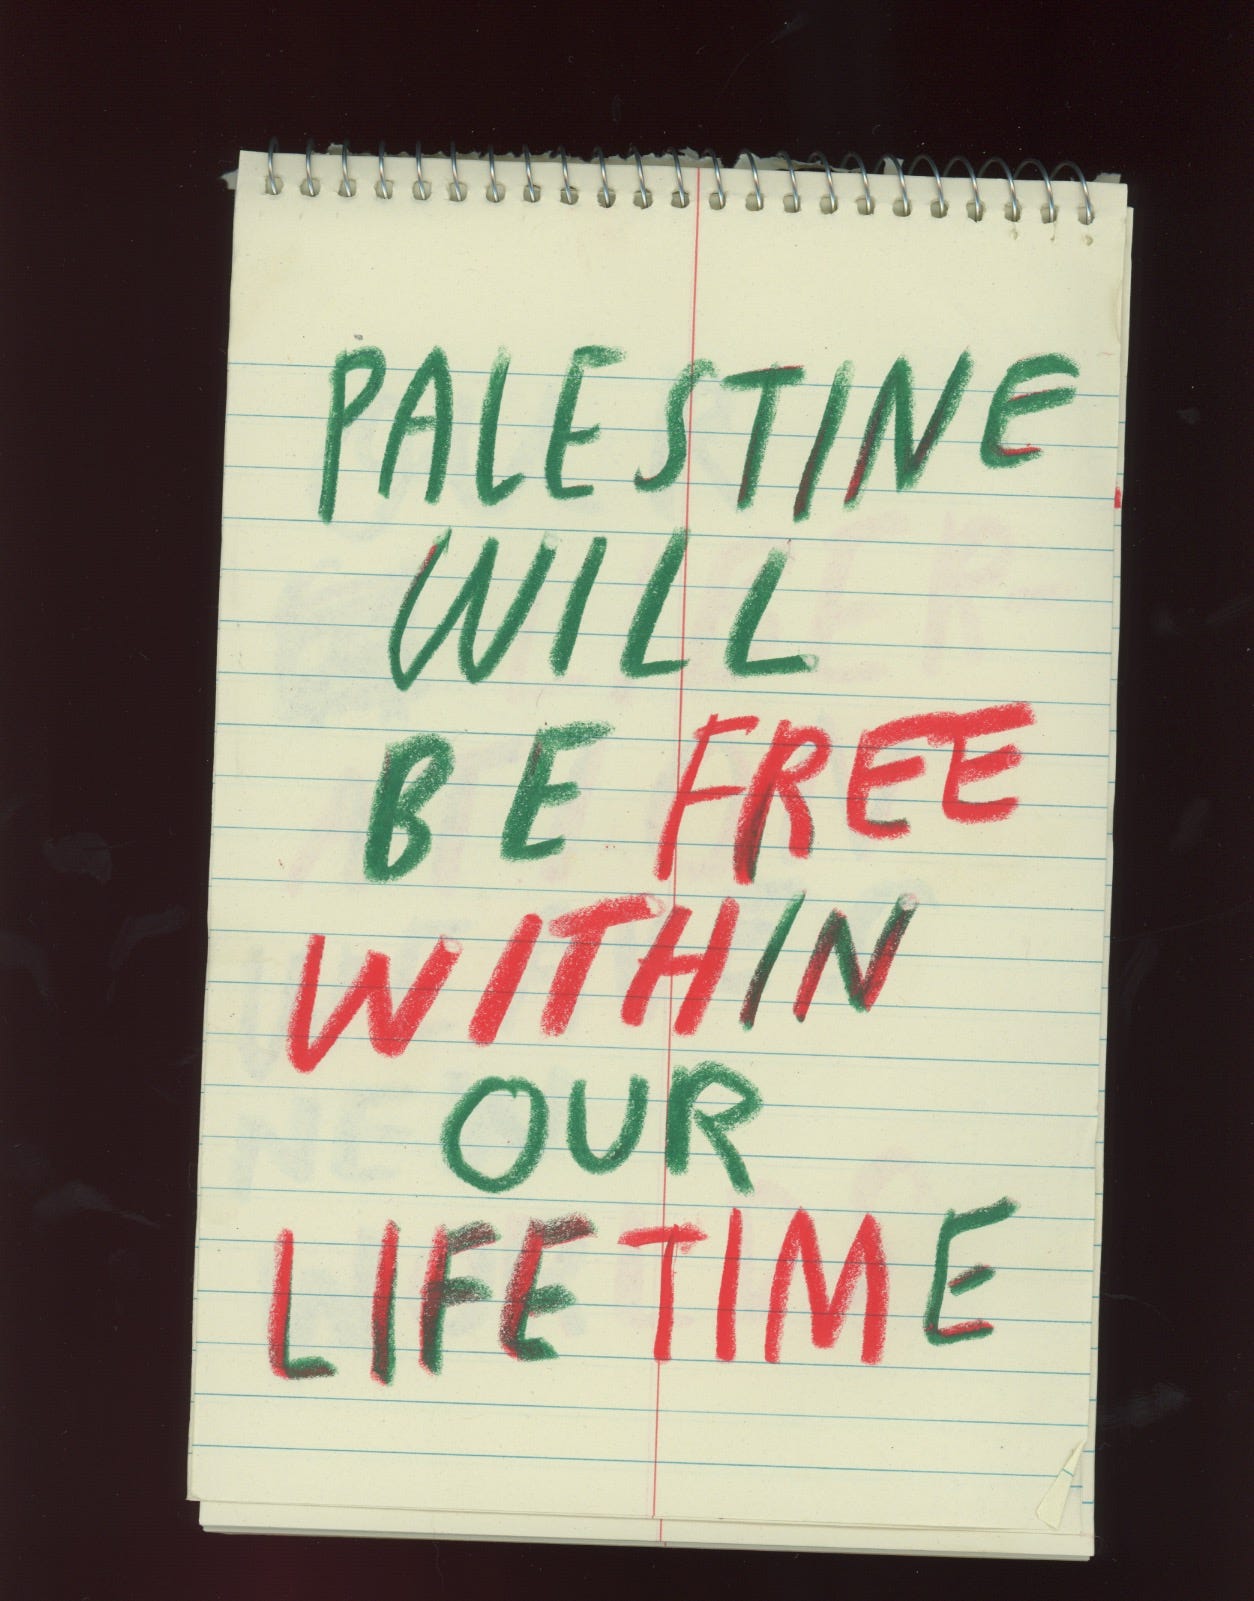 PALESTINE
WILL
BE FREE
WITHIN
OUR
LIFETIME